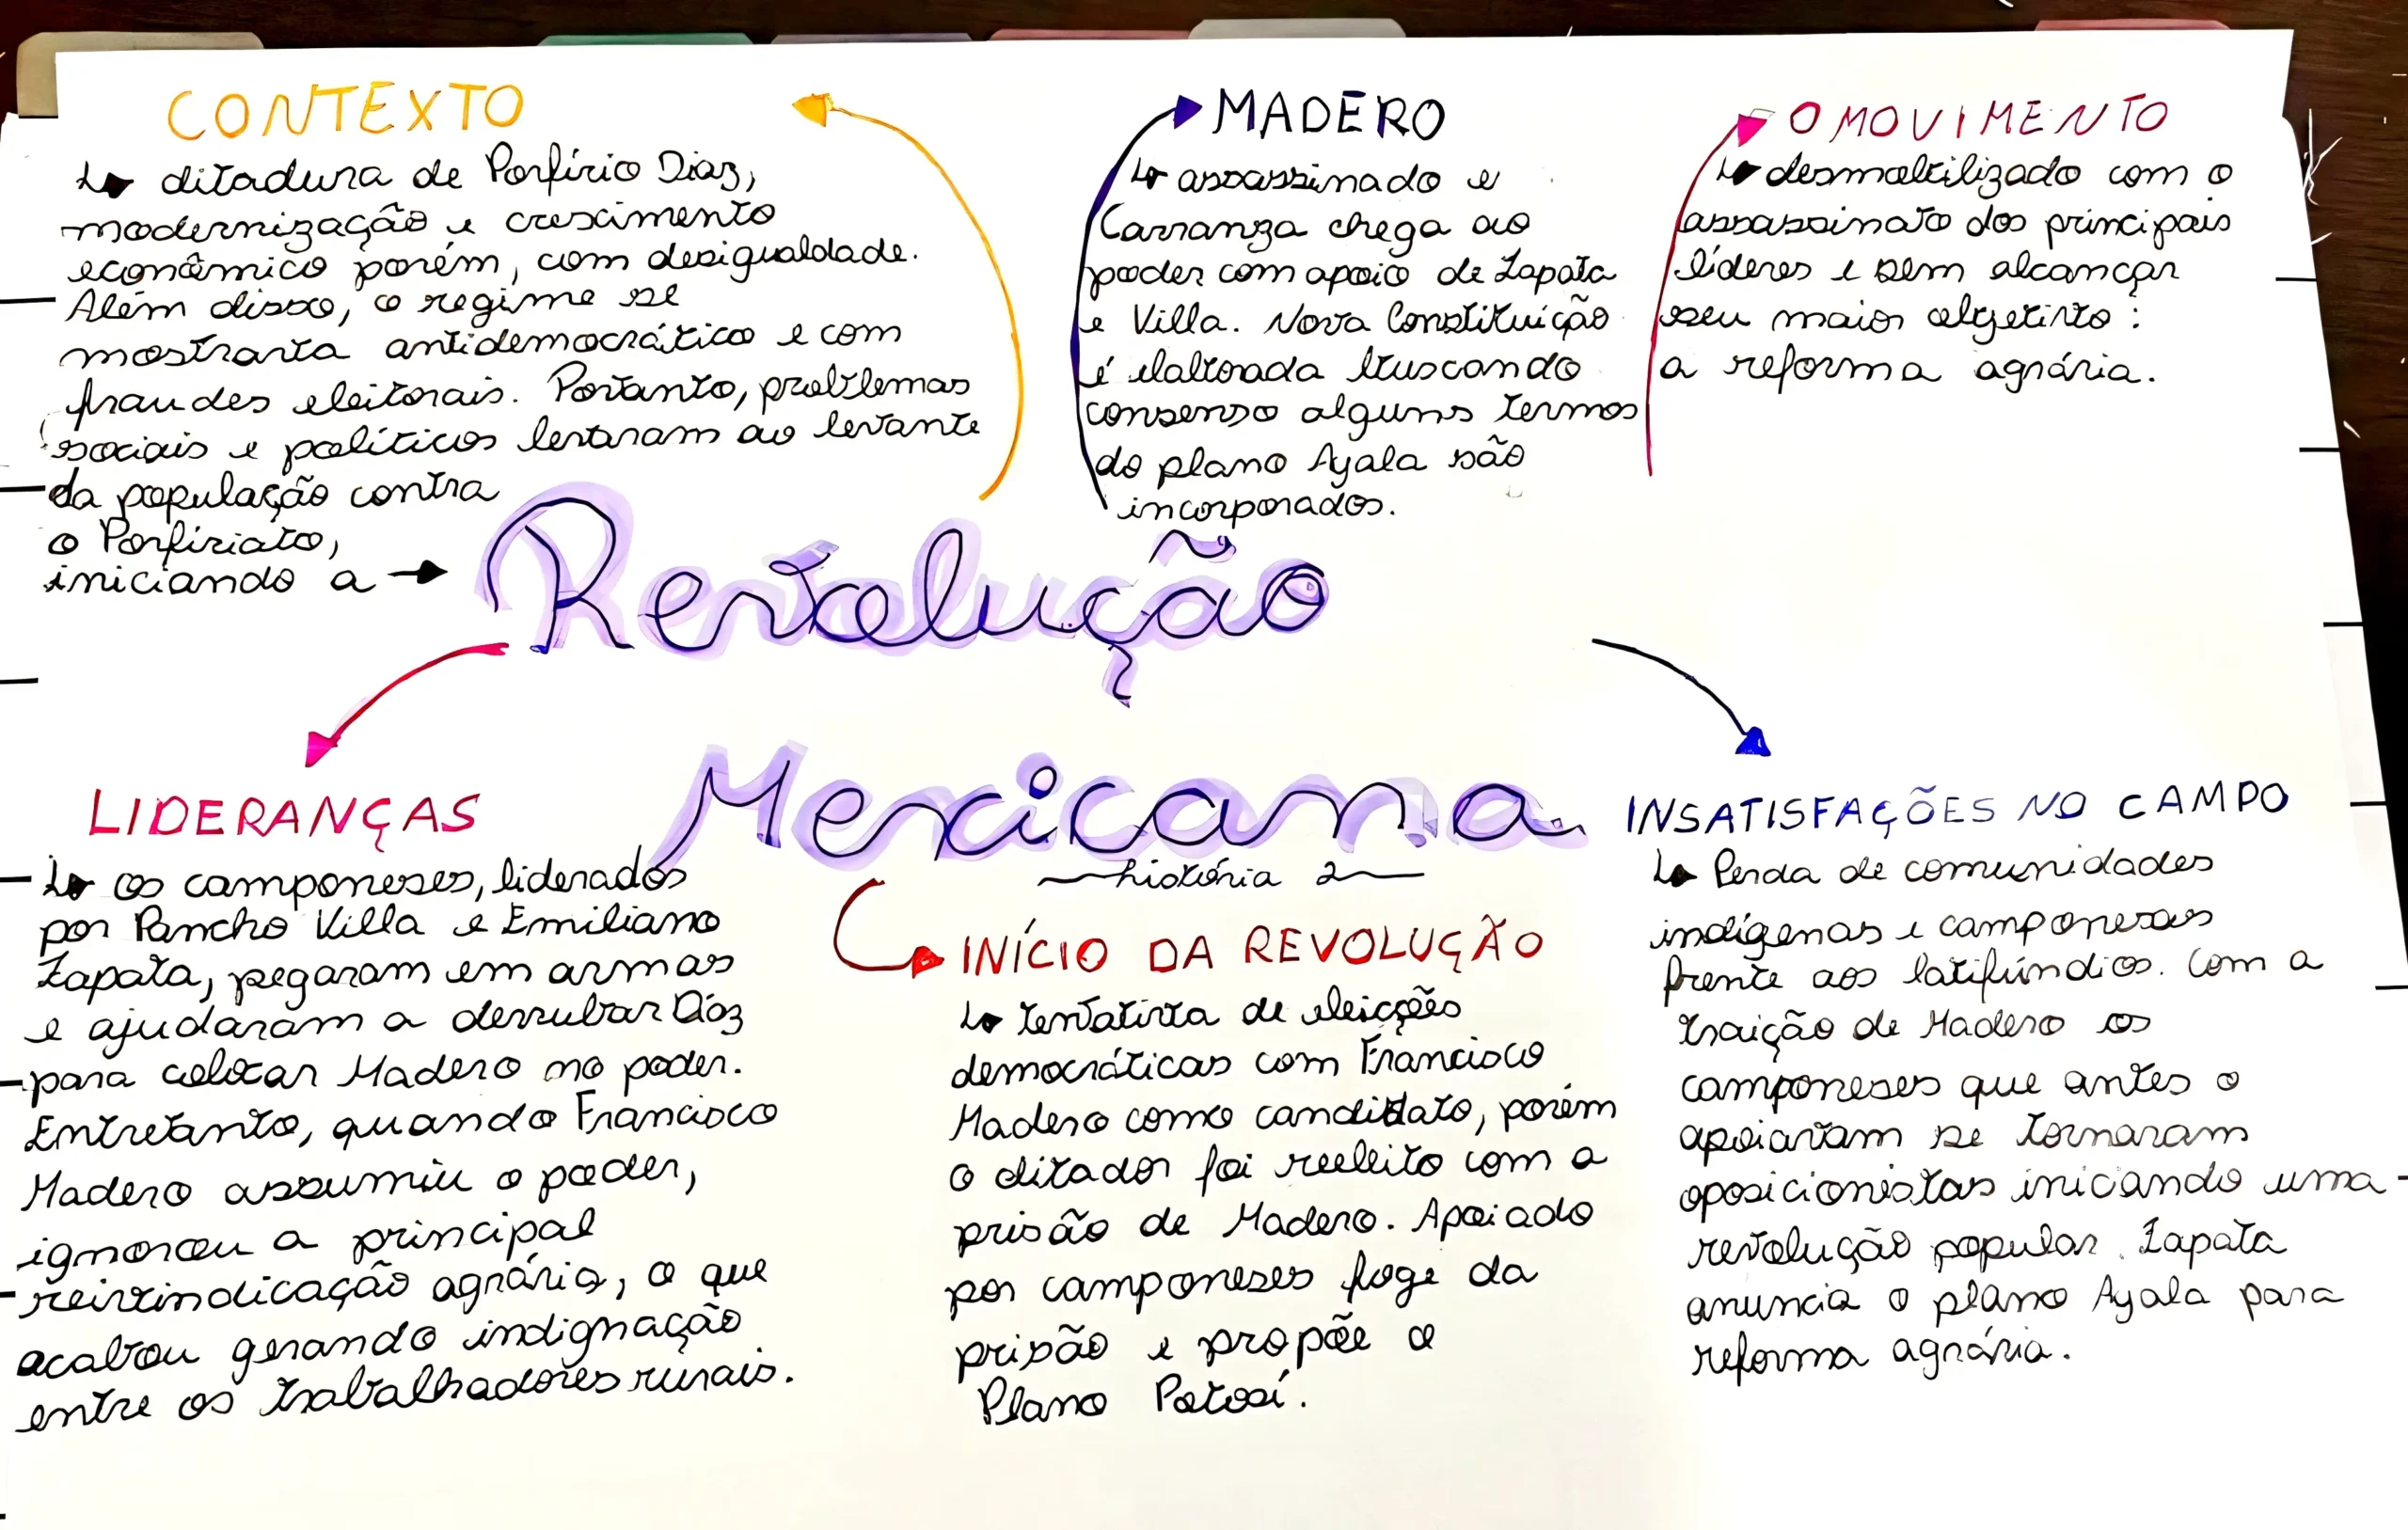 CONTEXTO
↳ ditadura de Porfírio Diaz,
modernização e crescimento
econômico porém, com desigualdade.
Além disso, o regime se
mostrava antidemocrático e com
fraudes eleitorais. Portanto, problemas
sociais e políticos levaram ao levante
da população contra
o Porfiriato,
iniciando a →
MADERO
↳ assassinado e
Carranza chega ao
poder com apoio de Zapata
e Villa. Nova Constituição
é elaborada buscando
consenso alguns termos
do plano Ayala são
incorporados.
O MOVIMENTO
↳ desmobilizado com o
assassinato dos principais
líderes e sem alcançar
seu maior objetivo:
a reforma agrária.
Revolução
Mexicana
história 2
LIDERANÇAS
↳ os camponeses, liderados
por Pancho Villa e Emiliano
Zapata, pegaram em armas
e ajudaram a derrubar Díaz
para colocar Madero no poder.
Entretanto, quando Francisco
Madero assumiu o poder,
ignorou a principal
reivindicação agrária, o que
acabou gerando indignação
entre os trabalhadores rurais.
INÍCIO DA REVOLUÇÃO
↳ tentativa de eleições
democráticas com Francisco
Madero como candidato, porém
o ditador foi reeleito com a
prisão de Madero. Apoiado
por camponeses foge da
prisão e propõe o
Plano Potosí.
INSATISFAÇÕES NO CAMPO
↳ Perda de comunidades
indígenas e camponesas
frente aos latifúndios. Com a
traição de Madero os
camponeses que antes o
apoiavam se tornaram
oposicionistas inicando uma
revolução popular. Zapata
anuncia o plano Ayala para
reforma agrária.